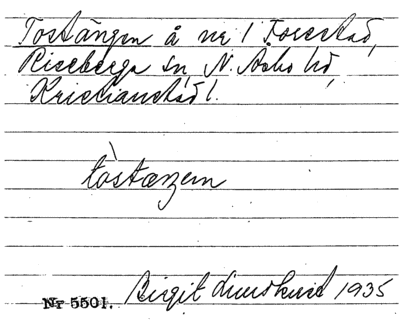 Tostängen å nr 1 Forestad,
Riseberga sn, N. Åsbo hd,
Kristianstad l.
tòstæŋen
Nr 5501. Birgit Lundkvist 1935